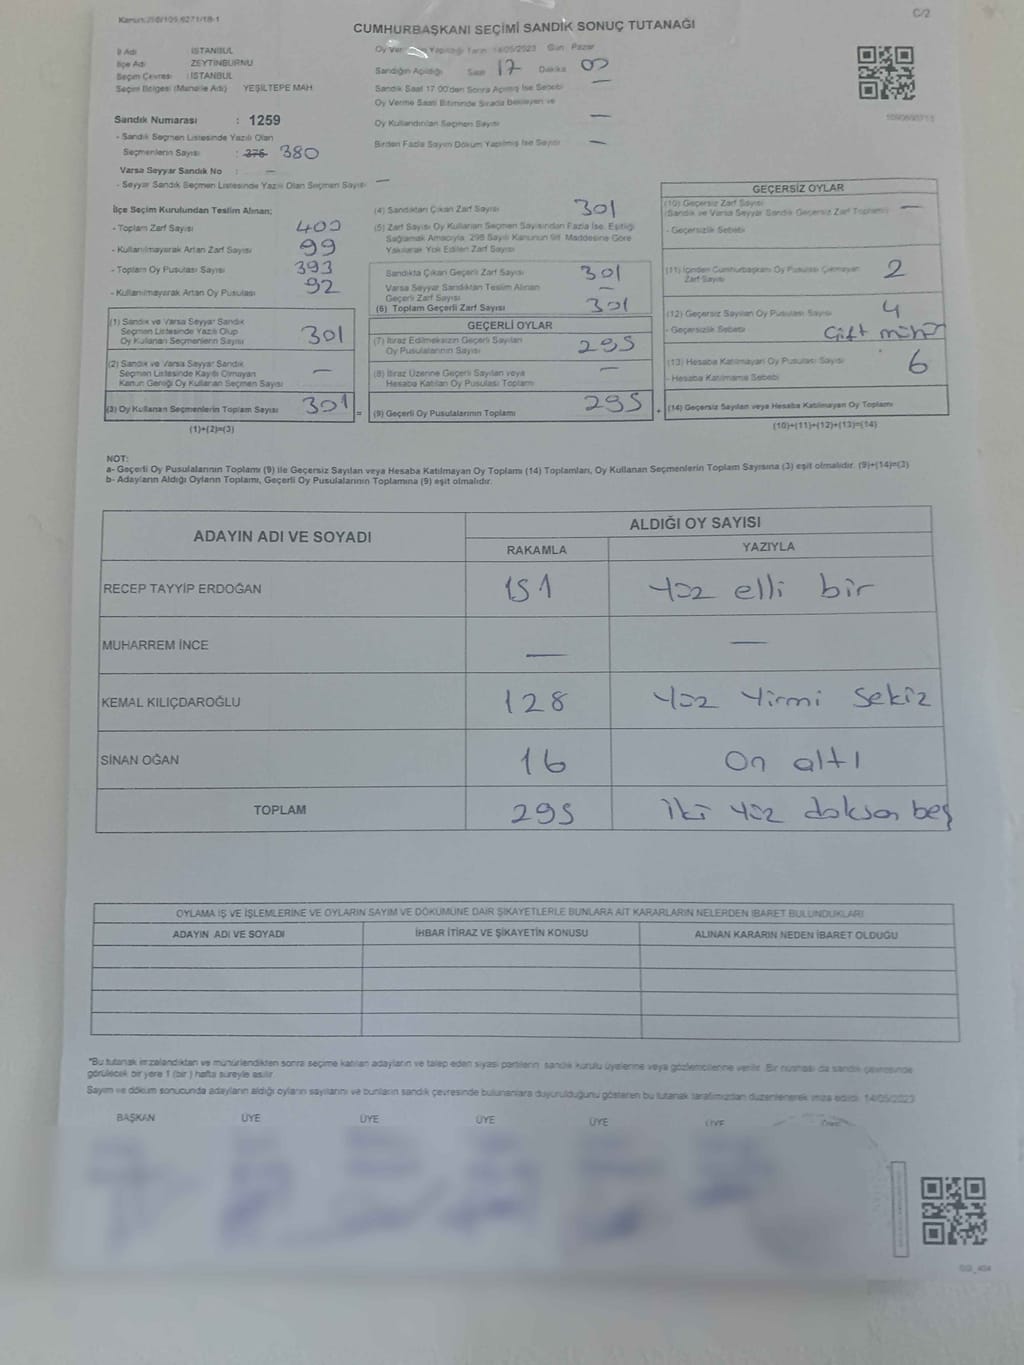 C/2
CUMHURBAŞKANI SEÇİMİ SANDIK SONUÇ TUTANAĞI
İl Adı : İSTANBUL
İlçe Adı : ZEYTİNBURNU
Seçim Çevresi : İSTANBUL
Seçim Bölgesi (Mahalle Adı) YEŞİLTEPE MAH
Sandık Numarası : 1259
- Sandık Seçmen Listesinde Yazılı Olan
Seçmenlerin Sayısı : 375 380
Varsa Seyyar Sandık No : —
- Seyyar Sandık Seçmen Listesinde Yazılı Olan Seçmen Sayısı —
Tarih 14/05/2023 Gün Pazar
Sandığın Açıldığı Saat 17 Dakika 00
Sandık Saat 17.00'den Sonra Açılmış İse Sebebi —
Oy Verme Saati Bitiminde Sırada Bekleyen ve
Oy Kullandırılan Seçmen Sayısı —
Birden Fazla Sayım Döküm Yapılmış İse Sayısı —
İlçe Seçim Kurulundan Teslim Alınan;
- Toplam Zarf Sayısı 400
- Kullanılmayarak Artan Zarf Sayısı 99
- Toplam Oy Pusulası Sayısı 393
- Kullanılmayarak Artan Oy Pusulası 92
(1) Sandık ve Varsa Seyyar Sandık
Seçmen Listesinde Yazılı Olup
Oy Kullanan Seçmenlerin Sayısı 301
(2) Sandık ve Varsa Seyyar Sandık
Seçmen Listesinde Kaydı Olmayan
Kanun Gereği Oy Kullanan Seçmen Sayısı —
(3) Oy Kullanan Seçmenlerin Toplam Sayısı 301 =
(1)+(2)=(3)
(4) Sandıktan Çıkan Zarf Sayısı 301
(5) Zarf Sayısı Oy Kullanan Seçmen Sayısından Fazla İse, Eşitliği
Sağlamak Amacıyla, 298 Sayılı Kanunun 98. Maddesine Göre
Yakılarak Yok Edilen Zarf Sayısı
Sandıkta Çıkan Geçerli Zarf Sayısı 301
Varsa Seyyar Sandıktan Teslim Alınan
Geçerli Zarf Sayısı —
(6) Toplam Geçerli Zarf Sayısı 301
GEÇERLİ OYLAR
(7) İtiraz Edilmeksizin Geçerli Sayılan
Oy Pusulalarının Sayısı 295
(8) İtiraz Üzerine Geçerli Sayılan veya
Hesaba Katılan Oy Pusulası Toplamı —
(9) Geçerli Oy Pusulalarının Toplamı 295 +
GEÇERSİZ OYLAR
(10) Geçersiz Zarf Sayısı
(Sandık ve Varsa Seyyar Sandık Geçersiz Zarf Toplamı) —
- Geçersizlik Sebebi
(11) İçinden Cumhurbaşkanı Oy Pusulası Çıkmayan
Zarf Sayısı 2
(12) Geçersiz Sayılan Oy Pusulası Sayısı 4
- Geçersizlik Sebebi Çift mühür
(13) Hesaba Katılmayan Oy Pusulası Sayısı 6
- Hesaba Katılmama Sebebi
(14) Geçersiz Sayılan veya Hesaba Katılmayan Oy Toplamı
(10)+(11)+(12)+(13)=(14)
NOT:
a- Geçerli Oy Pusulalarının Toplamı (9) ile Geçersiz Sayılan veya Hesaba Katılmayan Oy Toplamı (14) Toplamları, Oy Kullanan Seçmenlerin Toplam Sayısına (3) eşit olmalıdır. (9)+(14)=(3)
b- Adayların Aldığı Oyların Toplamı, Geçerli Oy Pusulalarının Toplamına (9) eşit olmalıdır.
ADAYIN ADI VE SOYADI
ALDIĞI OY SAYISI
RAKAMLA YAZIYLA
RECEP TAYYİP ERDOĞAN 151 yüz elli bir
MUHARREM İNCE — —
KEMAL KILIÇDAROĞLU 128 yüz yirmi sekiz
SİNAN OĞAN 16 on altı
TOPLAM 295 iki yüz doksan beş
OYLAMA İŞ VE İŞLEMLERİNE VE OYLARIN SAYIM VE DÖKÜMÜNE DAİR ŞİKAYETLERLE BUNLARA AİT KARARLARIN NELERDEN İBARET BULUNDUKLARI
ADAYIN ADI VE SOYADI İHBAR İTİRAZ VE ŞİKAYETİN KONUSU ALINAN KARARIN NEDEN İBARET OLDUĞU
*Bu tutanak imzalandıktan ve mühürlendikten sonra seçime katılan adayların ve talep eden siyasi partilerin sandık kurulu üyelerine veya gözlemcilerine verilir. Bir nüshası da sandık çevresinde
görülecek bir yere 1 (bir) hafta süreyle asılır.
Sayım ve döküm sonucunda adayların aldığı oyların sayılarını ve bunların sandık çevresinde bulunanlara duyurulduğunu gösteren bu tutanak tarafımızdan düzenlenerek imza edildi. 14/05/2023
BAŞKAN ÜYE ÜYE ÜYE ÜYE ÜYE